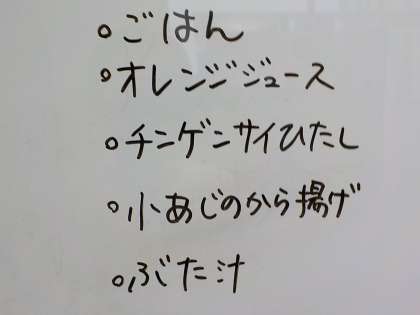 。ごはん
。オレンジジュース
。チンゲンサイひたし
。小あじのから揚げ
。ぶた汁